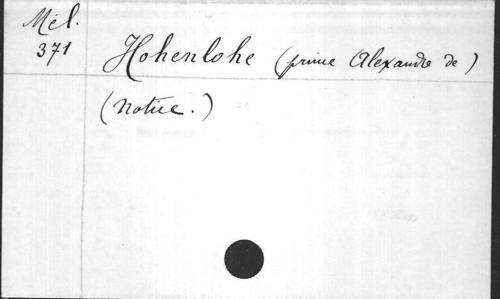 Mél.
371
Hohenlohe (prince Alexandre de)
(Notice.)